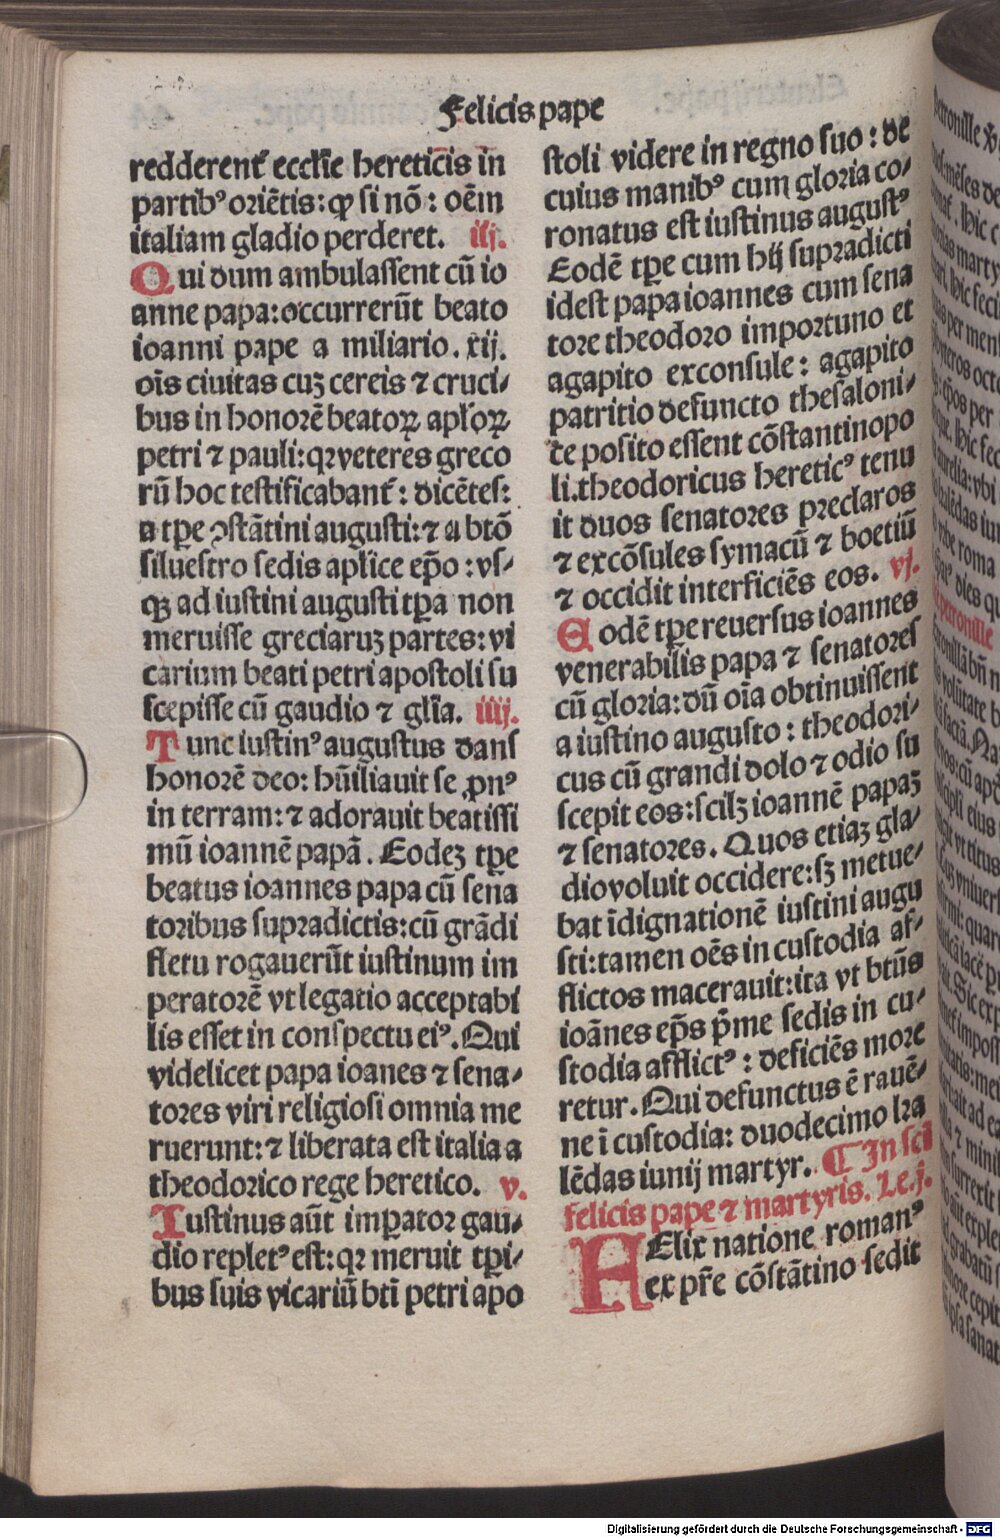 Felicis pape
redderent᷑ eccłie hereticis in
partibꝰ oriētis: ꝙ si nō: oēm
italiam gladio perderet. iij.
Qui dum ambulassent cū io
anne papa: occurrerūt beato
ioanni pape a miliario. xij.
oīs ciuitas cuꝫ cereis ⁊ cruci/
bus in honorē beatoꝝ apłoꝝ
petri ⁊ pauli: qꝛ veteres greco
rū hoc testificabant᷑: dicētes:
a tꝑe ꝯstātini augusti: ⁊ a btō
siluestro sedis apłice ep̄o: vs/
qꝫ ad iustini augusti tꝑa non
meruisse greciaruꝫ partes: vi
carium beati petri apostoli su
scepisse cū gaudio ⁊ glīa. iiij.
Tunc iustinꝰ augustus dans
honorē deo: hūiliauit se ꝓnꝰ
in terram: ⁊ adorauit beatissi
mū ioannē papā. Eodeꝫ tꝑe
beatus ioannes papa cū sena
toribus supradictis: cū grādi
fletu rogauerūt iustinum im
peratorē vt legatio acceptabi
lis esset in conspectu eiꝰ. Qui
videlicet papa ioanes ⁊ sena/
tores viri religiosi omnia me
ruerunt: ⁊ liberata est italia a
theodorico rege heretico. v.
Iustinus aūt imꝑator gau/
dio repletꝰ est: qꝛ meruit tꝑi/
bus suis vicariū bti petri apo
stoli videre in regno suo: de
cuius manibꝰ cum gloria co/
ronatus est iustinus augustꝰ
Eodē tꝑe cum hij supradicti
idest papa ioannes cum sena
tore theodoro importuno et
agapito exconsule: agapito
patritio defuncto thesaloni/
ce posito essent cōstantinopo
li. theodoricus hereticꝰ tenu
it duos senatores preclaros
⁊ excōsules symacū ⁊ boetiū
⁊ occidit interficiēs eos. vj.
Eodē tꝑe reuersus ioannes
venerabilis papa ⁊ senatores
cū gloria: dū oīa obtinuissent
a iustino augusto: theodori/
cus cū grandi dolo ⁊ odio su
scepit eos: scilꝫ ioannē papaꝫ
⁊ senatores. Quos etiaꝫ gla/
dio voluit occidere: sꝫ metue/
bat īdignationē iustini augu
sti: tamen oēs in custodia af/
flictos macerauit: ita vt btūs
ioānes ep̄s p̄me sedis in cu/
stodia afflictꝰ: deficiēs more
retur. Qui defunctus ē rauē/
ne ī custodia: duodecimo kꝛa
lēdas iunij martyr. ¶ In scī
felicis pape ⁊ martyris. Le. j.
FElix natione romanꝰ
ex pr̄e cōstātino sedit
Digitalisierung gefördert durch die Deutsche Forschungsgemeinschaft - DFG